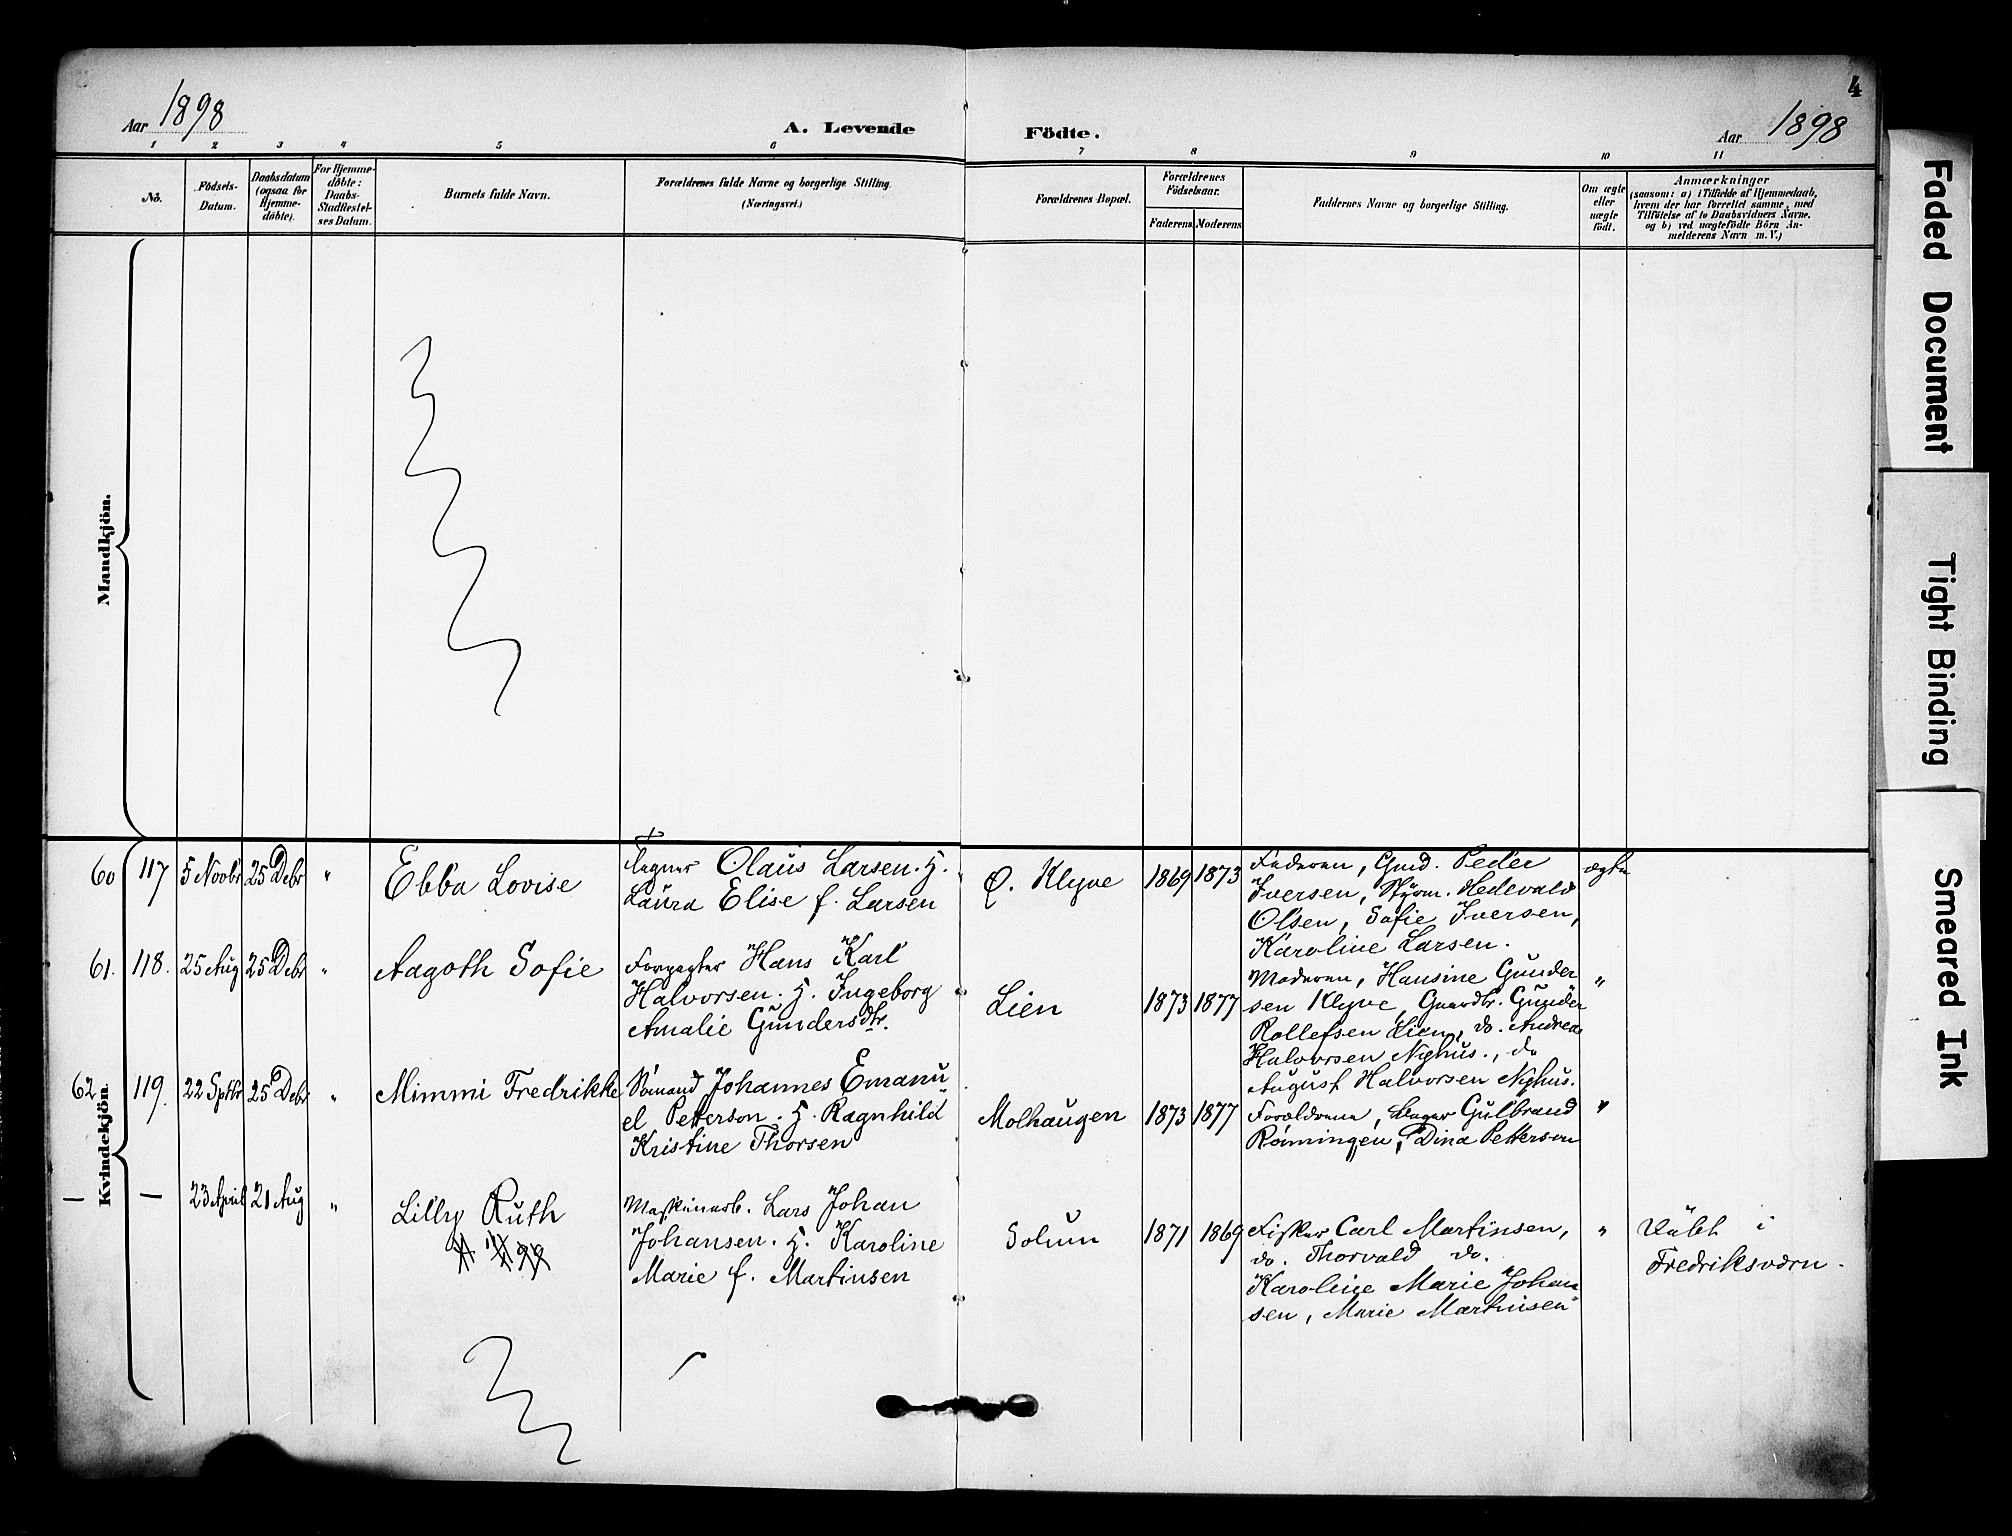 4
Aar 1898
A. Levende
Födte.
Aar 1898
1 2 3 4 5 6 7 8 9 10 11
No.
Födsels-
Datum.
Daabsdatum
(ogsaa for
Hjemme-
döbte).
For Hjemme-
döbte:
Daabs-
Stadfæstel-
ses Datum.
Barnets fulde Navn.
Forældrenes fulde Navne og borgerlige Stilling.
(Næringsvei.)
Forældrenes Bopæl.
Forældrenes
Födselsaar.
Faderens
Moderens
Faddernes Navne og borgerlige Stilling.
Om ægte
eller
uægte
födt.
Anmærkninger
(saasom: a) i Tilfælde af Hjemmedaab,
hvem der har forrettet samme, med
Tilföielse af to Daabsvidners Navne,
og b) ved uægtefödte Börn An-
melderens Navn m. V.)
Mandkjön.
Kvindekjön.
60 117 5 Novbr 25 Debr "
Ebba Lovise
Olaus Larsen. H.
Laura Elise f. Larsen
Ø. Klyve
1869 1873
Faderen, Gmd. Peder
Iversen, Styrm. Hedevald
Olsen, Sofie Iversen,
Karoline Larsen.
ægte
61. 118. 25 Aug 25 Debr "
Aagoth Sofie
Forpagter Hans Karl
Halvorsen. H. Ingeborg
Amalie Gundersdtr.
Lien
1873 1877
Moderen, Hansine Gunder
sen Klyve, Gaardbr. Gunder
Rollefsen Lien, do. Andreas
Halvorsen Nyhus., do
August Halvorsen Nyhus.
"
62 119. 22 Sptbr 25 Debr "
Mimmi Fredrikke
Sömand Johannes Emanu
el Petterson. H. Ragnhild
Kristine Thorsen
Molhaugen
1873 1877
Forældrene, Gulbrand
Rönningen, Dina Petterson
"
— — 23 April 21 Aug "
Lilly Ruth
Maskinarb. Lars Johan
Johansen. H. Karoline
Marie f. Martinsen
Solum
1871 1869
Fisker Carl Martinsen,
do. Thorvald do.
Karoline Marie Johan
sen, Marie Martinsen
"
Döbt i
Fredriksværn.
Faded Document
Tight Binding
Smeared Ink